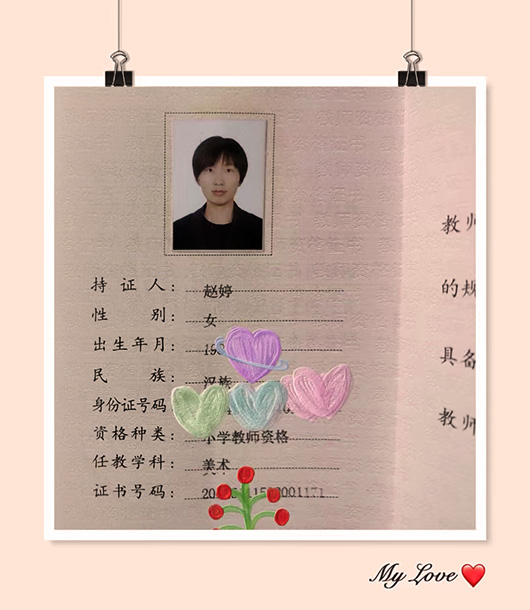 持证人： 赵婷
性别： 女
出生年月：
民族： 汉族
身份证号码：
资格种类： 小学教师资格
任教学科： 美术
证书号码：
教师
的规
具备
教师
My Love